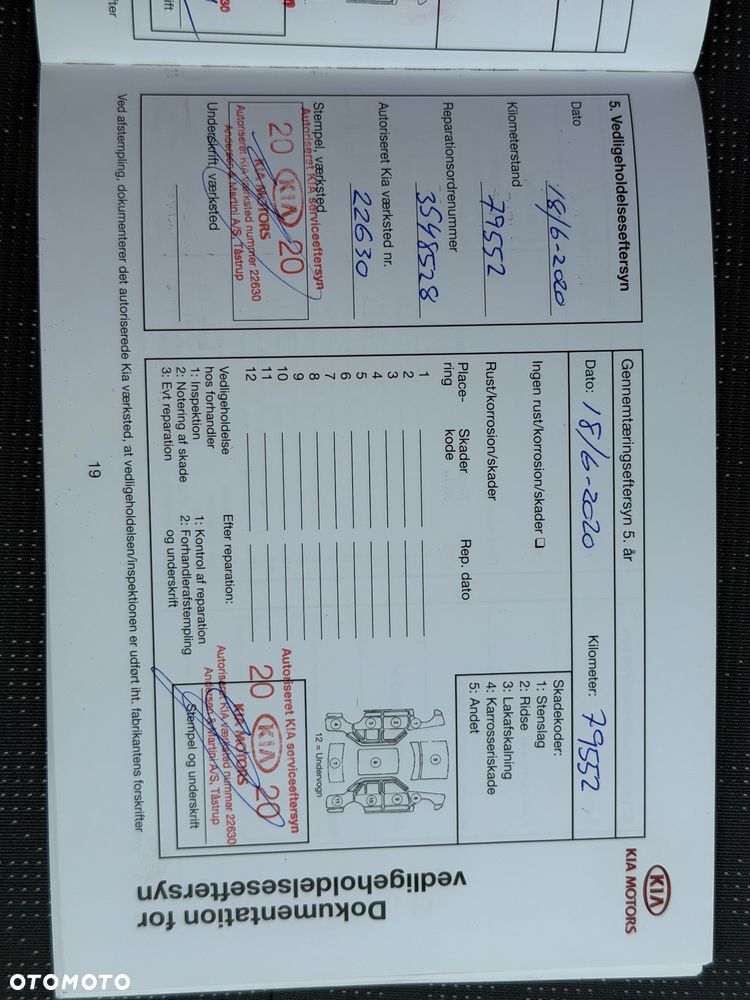 Dokumentation for
vedligeholdelseseftersyn
KIA
KIA MOTORS
5. Vedligeholdelseseftersyn
Dato
18/6-2020
Kilometerstand
79552
Reparationsordrenummer
3548528
Autoriseret Kia værksted nr.
22630
Stempel, værksted
Autoriseret KIA serviceeftersyn
20 KIA 20
KIA MOTORS
Autoriseret KIA værksted nummer 22630
Andersen & Martini A/S, Tåstrup
Underskrift, værksted
Gennemtæringseftersyn 5. år
Dato: 18/6-2020
Kilometer: 79552
Ingen rust/korrosion/skader ❏
Rust/korrosion/skader
Place-
ring
Skader
kode
Rep. dato
1
2
3
4
5
6
7
8
9
10
11
12
Skadekoder:
1: Stenslag
2: Ridse
3: Lakafskalning
4: Karrosseriskade
5: Andet
12 = Undervogn
Vedligeholdelse
hos forhandler
1: Inspektion
2: Notering af skade
3: Evt reparation
Efter reparation:
1: Kontrol af reparation
2: Forhandlerafstempling
og underskrift
Autoriseret KIA serviceeftersyn
20 KIA 20
KIA MOTORS
Autoriseret KIA værksted nummer 22630
Andersen & Martini A/S, Tåstrup
Stempel og underskrift
Ved afstempling, dokumenterer det autoriserede Kia værksted, at vedligeholdelsen/inspektionen er udført iht. fabrikantens forskrifter
19
OTOMOTO